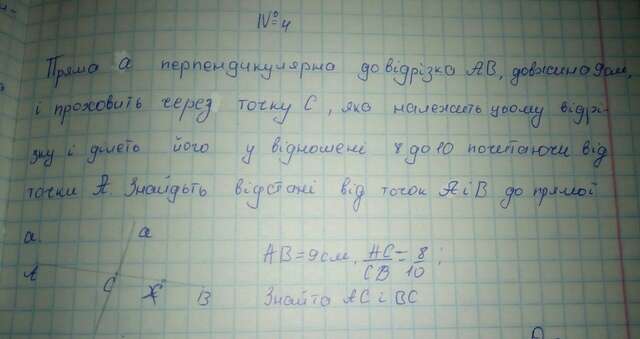 №4
Пряма a перпендикулярна до відрізка AB, довжина 9 см,
і проховить через точку C, яка належить цьому відрі-
зку і ділеть його у відномені 8 до 10 почетаючи від
точки A. Знайдьть відстані від точок A і B до прямої
a.
a
A
C
B
AB=9см, AC/CB=8/10;
Знайта AC і BC